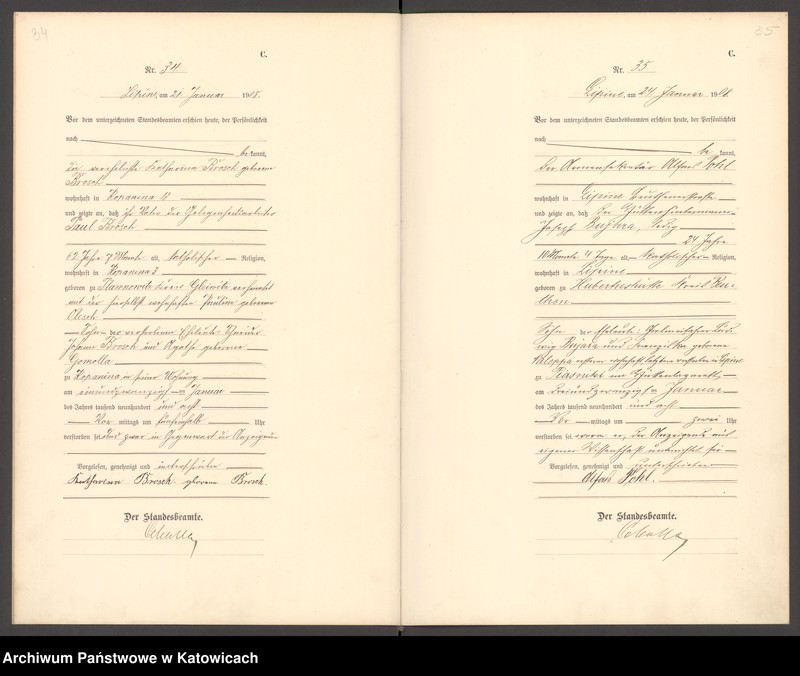 34
C.
Nr. 34.
Lipine, am 21. Januar 1908.
Vor dem unterzeichneten Standesbeamten erschien heute, der Persönlichkeit
nach
be kannt,
die verehelichte Katharina Brosch geborene
Brosch
wohnhaft in Kopanina 11
und zeigte an, daß ihr Vater der Gelegenheitsarbeiter
Paul Brosch
62 Jahre 7 Monate alt, katholischer Religion,
wohnhaft in Kopanina 3
geboren zu Kreis Gleiwitz verheiratet
mit der hierselbst wohnhaften Pauline geborene
Sohn der verstorbenen Eheleute
Johann Brosch und Agathe geborene
Gomolla
zu Kopanina in seiner Wohnung
am einundzwanzigsten Januar
des Jahres tausend neunhundert und acht
Vor mittags um Uhr
verstorben sei und zwar in Gegenwart der Anzeigenden
Vorgelesen, genehmigt und unterschrieben
Katharina Brosch geborene Brosch
Der Standesbeamte.
35
C.
Nr. 35
Lipine, am 24. Januar 1908.
Vor dem unterzeichneten Standesbeamten erschien heute, der Persönlichkeit
nach
be kannt,
der Armensekretär Alfred Pohl
wohnhaft in Lipine
und zeigte an, daß der
Joseph Bujara, ledig
24 Jahre
10 Monate 4 Tage alt, katholischer Religion,
wohnhaft in Lipine
geboren zu Hubertushütte Kreis Beu-
then
Sohn der Eheleute Lud-
wig Bujara und Franziska geborene
Lipine
zu
am dreiundzwanzigsten Januar
des Jahres tausend neunhundert und acht
Vor mittags um zwei Uhr
verstorben sei, wovon er, der Anzeigende aus
eigener Wissenschaft unterrichtet sei
Vorgelesen, genehmigt und unterschrieben
Alfred Pohl.
Der Standesbeamte.
Archiwum Państwowe w Katowicach